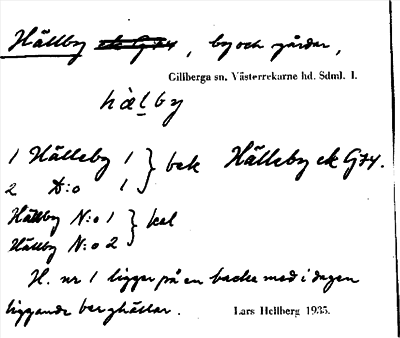 Hällby ek G74, by och gårdar,
Gillberga sn. Västerrekarne hd. Sdml. l.
hälby
1 Hälleby 1 } bek Hälleby ek G74.
2 D:o 1
Hällby N:o 1 } kal
Hällby N:o 2
H. nr 1 ligger på en backe med i dagen
liggande berghällar. Lars Hellberg 1935.